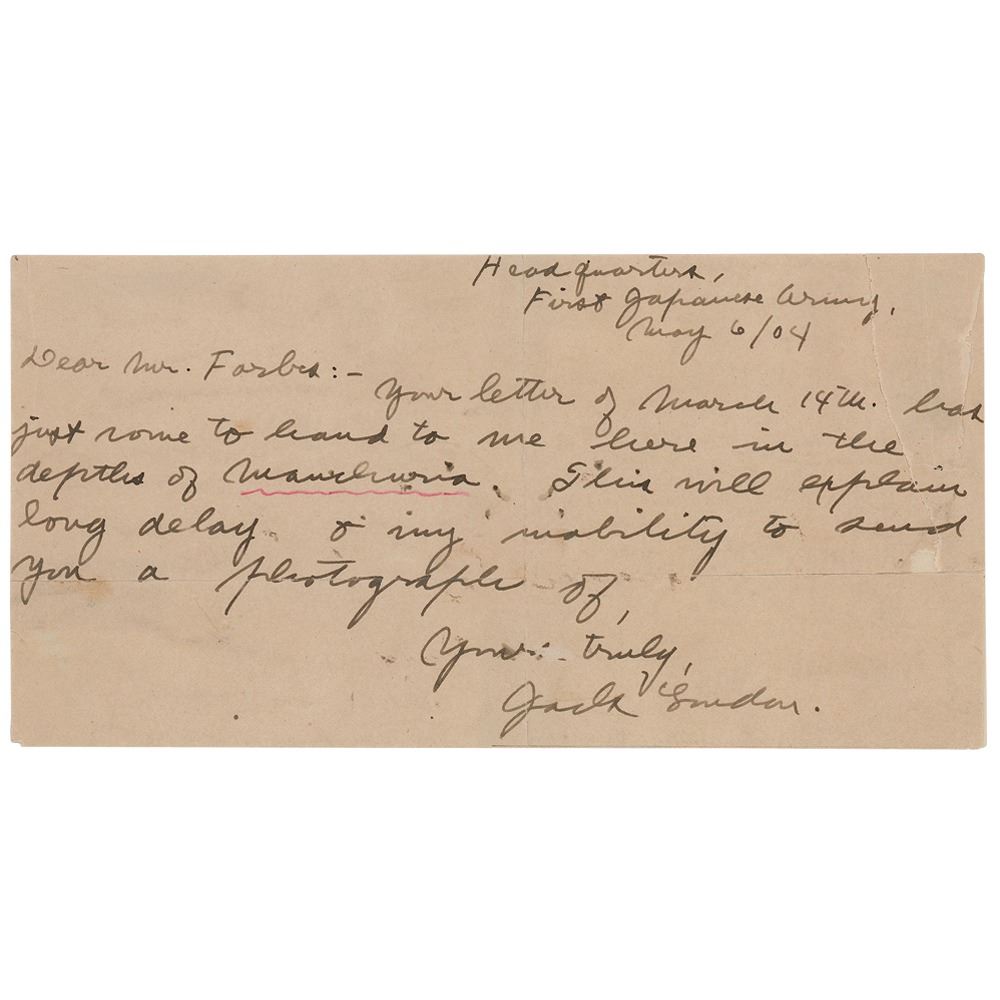 Headquarters,
First Japanese Army,
May 6/04
Dear Mr. Forbes:-
Your letter of March 14th. has
just come to hand to me here in the
depths of Manchuria. This will explain
long delay & my inability to send
you a photograph of,
Yours truly,
Jack London.